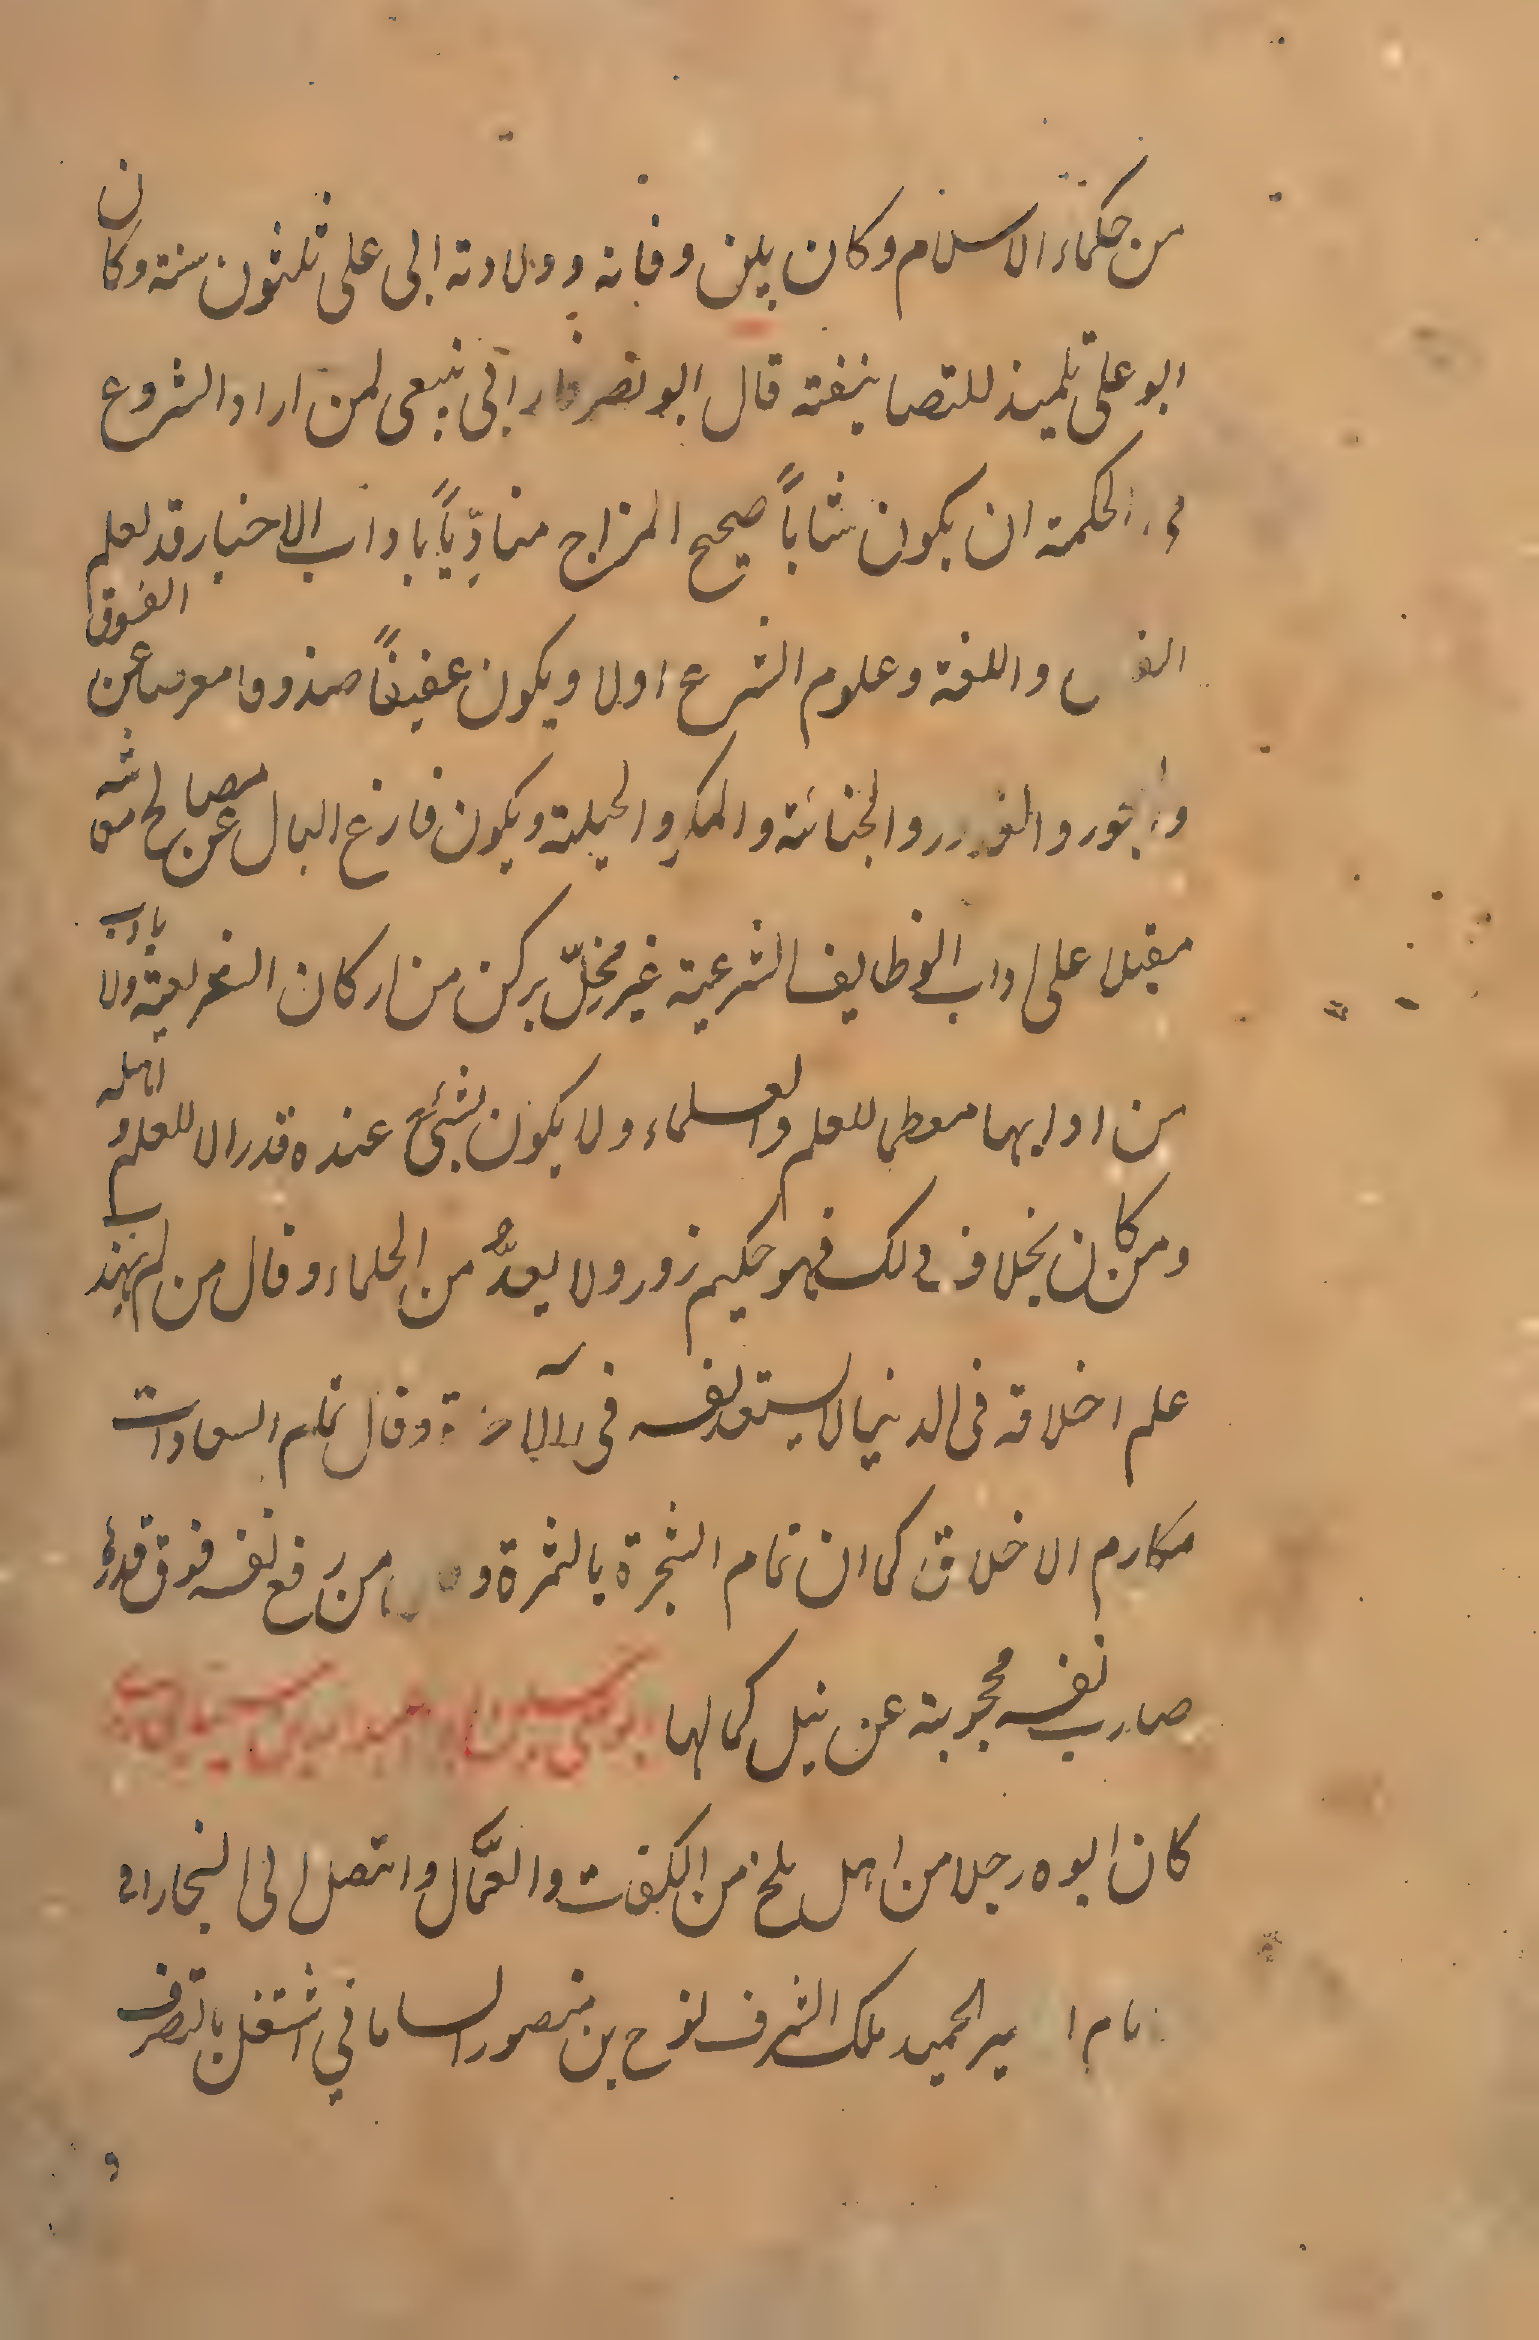 من حكماء الاسلام وكان بين وفاته وولادته ابى على ثلثون سنة وكان
ابو على تلميذ للتصانيفته قال ابو نصر فارابى ينبغى لمن اراد الشروع
فى الحكمة ان يكون شاباً صحيح المزاج متادِّياً باداب الاخيار قد تعلم
واللغة وعلوم الشرع اولا ويكون عفيفاً صدوقا معرضا عن الفسوق
والفجور والغدر والخيانة والمكر والحيلة ويكون فارغ البال عن مصالح معاشه
مقبلا على اداب الوظايف الشرعية غير مخلّ بركن من اركان الشريعة ولا بادب
من ادابها معظما للعلم والعلماء ولا يكون لشئٍ عنده قدر الا للعلم و اهله
ومن كان بخلاف ذلك فهو حكيم زور ولا يعدُّ من الحكماء وقال من لم يهذب
علم اخلاقه فى الدنيا لا يستعد نفسه فى الآخرة وقال تمام السعادات
مكارم الاخلاق كما ان تمام الشجرة بالثمرة و من رفع نفسه فوق قدره
صارت نفسه محجوبة عن نيل كمالها
كان ابوه رجلا من اهل بلخ من الكفات والعمّال وانتصل الى البخارا فى
ملك الشرف نوح بن منصور السامانى اشتغل بالتصرف
و